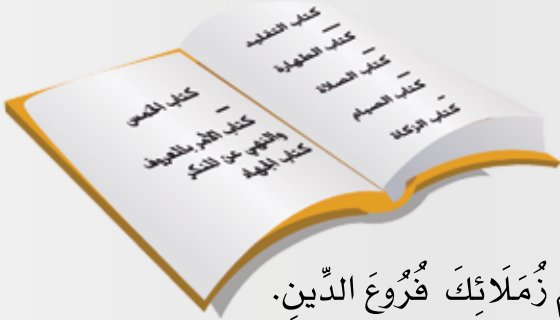 كتاب التقليد
كتاب الطهارة
كتاب الصلاة
كتاب الصيام
كتاب الزكاة
كتاب الخمس
كتاب الأمر بالمعروف
والنهي عن المنكر
كتاب الجهاد
زُمَلَائِكَ فُرُوعَ الدِّينِ.